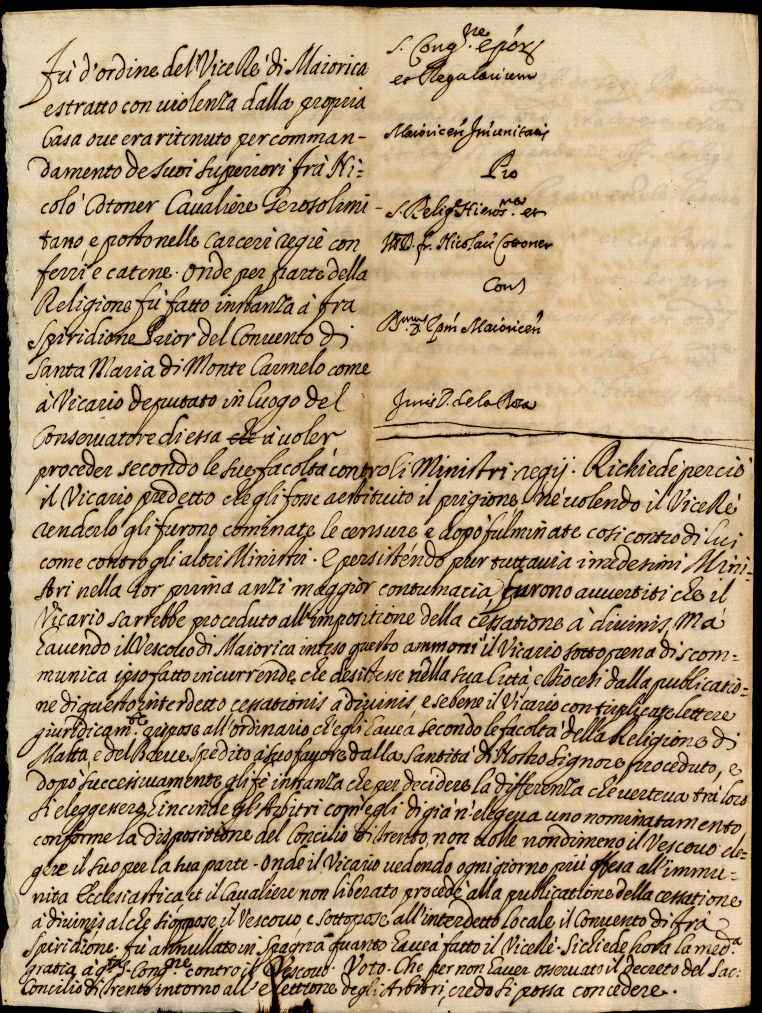 S. Cong.ne Epõrũ
et Regularium
Maioricen̄ Immunitatis
Pro
S. Relig.e Hieros.na et
fr. Nicolai Cotoner
Con
Epm̄ Maioricen̄
Juris D. de la Rosa
Fù d'ordine del Vice Rè di Maiorica
estratto con uiolenza dalla propria
Casa oue era ritenuto per comman-
damento de suoi superiori frà Ni:
colò Cotoner Caualiere Gerosolimi-
tano e posto nelle carceri regie con
ferri e catene. Onde per parte della
Religione fù fatto instanza à fra
Spiridione Prior del Conuento di
Santa Maria di Monte Carmelo come
à Vicario deputato in luogo del
Conseruatore di essa che à uoler
proceder secondo le sue facoltà contro li Ministri regij. Richiede perciò
il Vicario predetto che gli fosse restituito il prigione, nè uolendo il Vice Rè
renderlo gli furono cominate le censure e dopò fulminate così contro di lui
come contro gli altri Ministri. E persistendo pur tuttauia i medesimi Mini-
stri nella lor prima anzi maggior contumacia, furono auuertiti che il
Vicario sarrebbe proceduto all'impositione della cessatione à diuinis, mà
hauendo il Vescouo di Maiorica inteso questo ammonì il Vicario sotto pena di scom=
munica ipso facto incurrenda, che desistesse nella sua Città e Diocesi dalla publicatio=
ne di questo interdetto cessationis à diuinis e sebene il Vicario con triplicate lettere
giuridicam.te rispose all'ordinario ch'egli hauea secondo le facoltà della Religione di
Malta, e del Breue spedito à suo fauore dalla Santità di Nostro Signore proceduto, e
dopò successiuamente gli fè instanza che per decidere la differenza che uerteua trà loro
si eleggessero gli Arbitri com'egli di già n'eleggeua uno nominatamento
conforme la dispositione del Concilio di Trento, non uolle nondimeno il Vescouo ele-
gere il suo per la sua parte. Onde il Vicario uedendo ogni giorno più offesa all'immu-
nità Ecclesiastica et il Caualiere non liberato procedè alla publicatione della cessatione
à diuinis al che si oppose il Vescouo e sottopose all'interdetto locale il Conuento di frà
Spiridione. fù annullato in Spagna quanto hauea fatto il Vice Rè. Si chiede hora la med.a
gratia à q.ta S. Cong.ne contro il Vescouo. Voto. Che per non hauer osseruato il decreto del Sac:
Concilio di Trento intorno all'elettione degli Arbitri, credo si possa concedere.